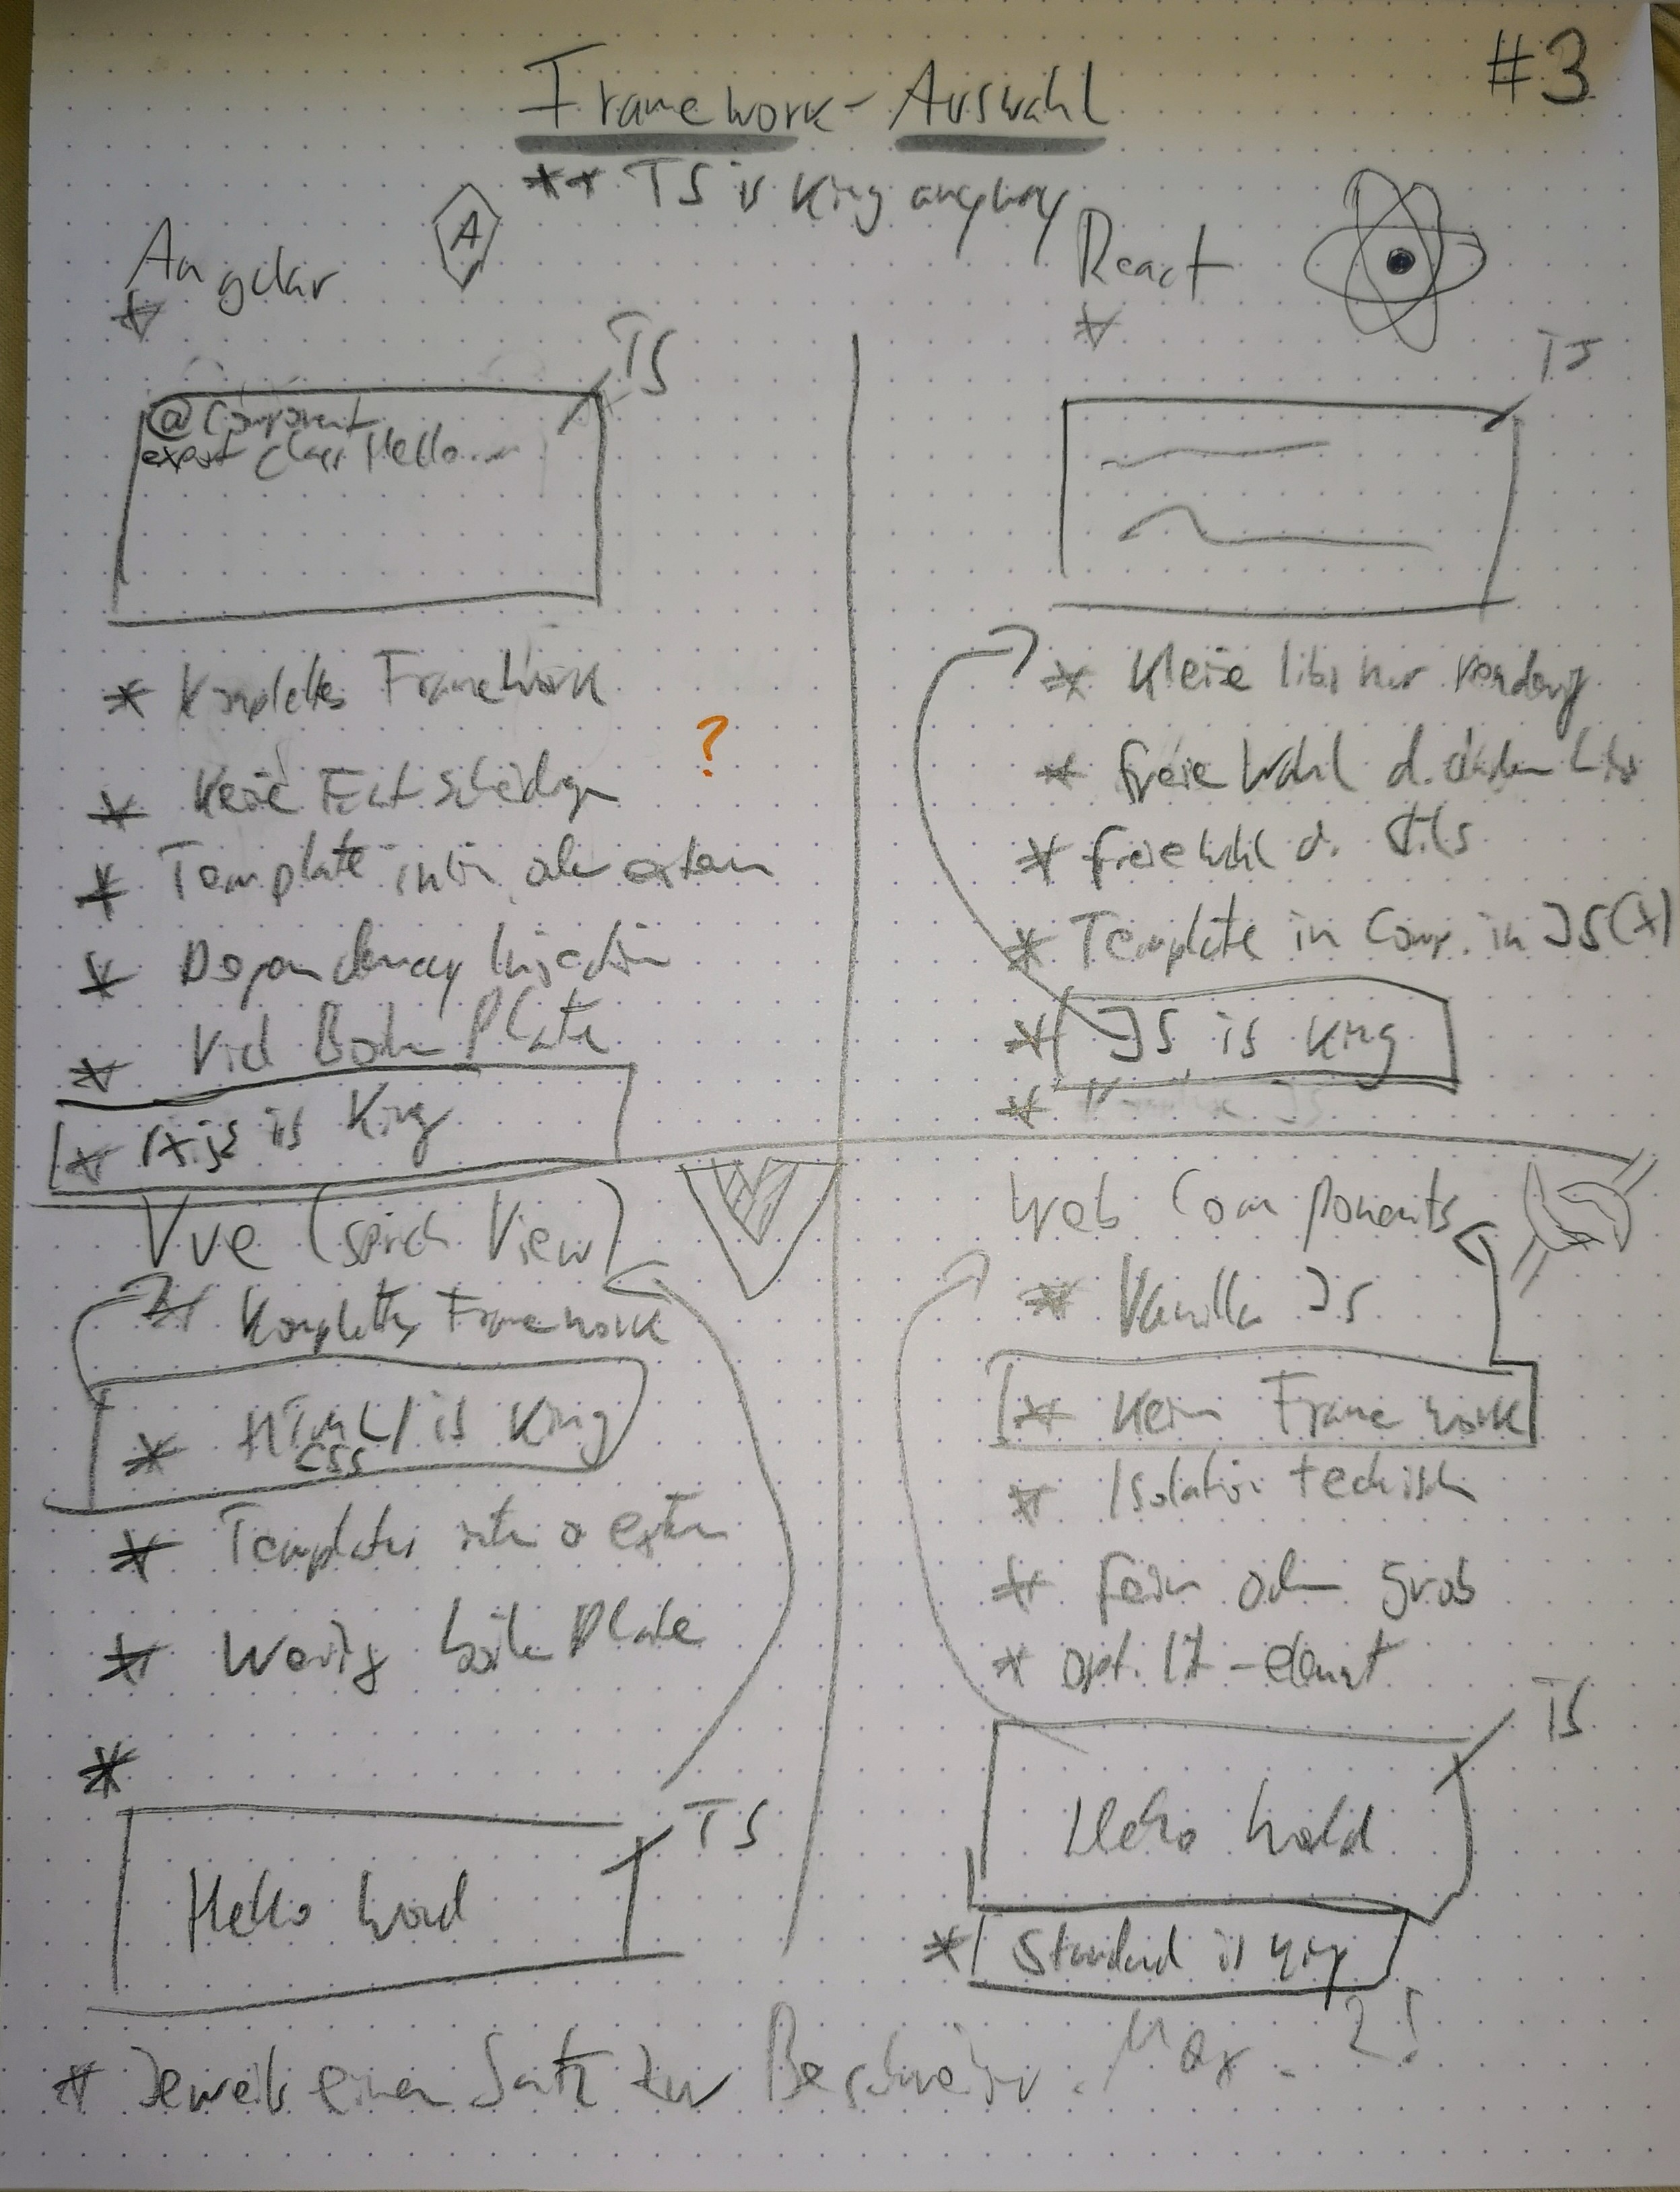 #3
Framework-Auswahl
** TS is King anyway
Angular
A
TS
@Component
export class Hello...
* Komplettes Framework
* Keine Entscheidungen
?
* Template intern oder extern
* Dependency Injection
* Viel Boiler Plate
* is King
React
TS
* Kleine libs nur rendering
* freie Wahl d. anderen Libs
* freie Wahl d. Stils
* Template in Comp. in JS(X)
* JS is King
*
Vue (sprich View)
* Komplettes Framework
* HTML/ is King
CSS
* Templates intern o extern
* Wenig boiler Plate
*
TS
Hello World
Web Components
* Vanilla JS
* Kein Framework
* Isolation technisch
* fein oder grob
* opt. lit-element
TS
Hello World
* Standard is King
* Jeweils einen Satz zur Beschreibung. Max. 2!